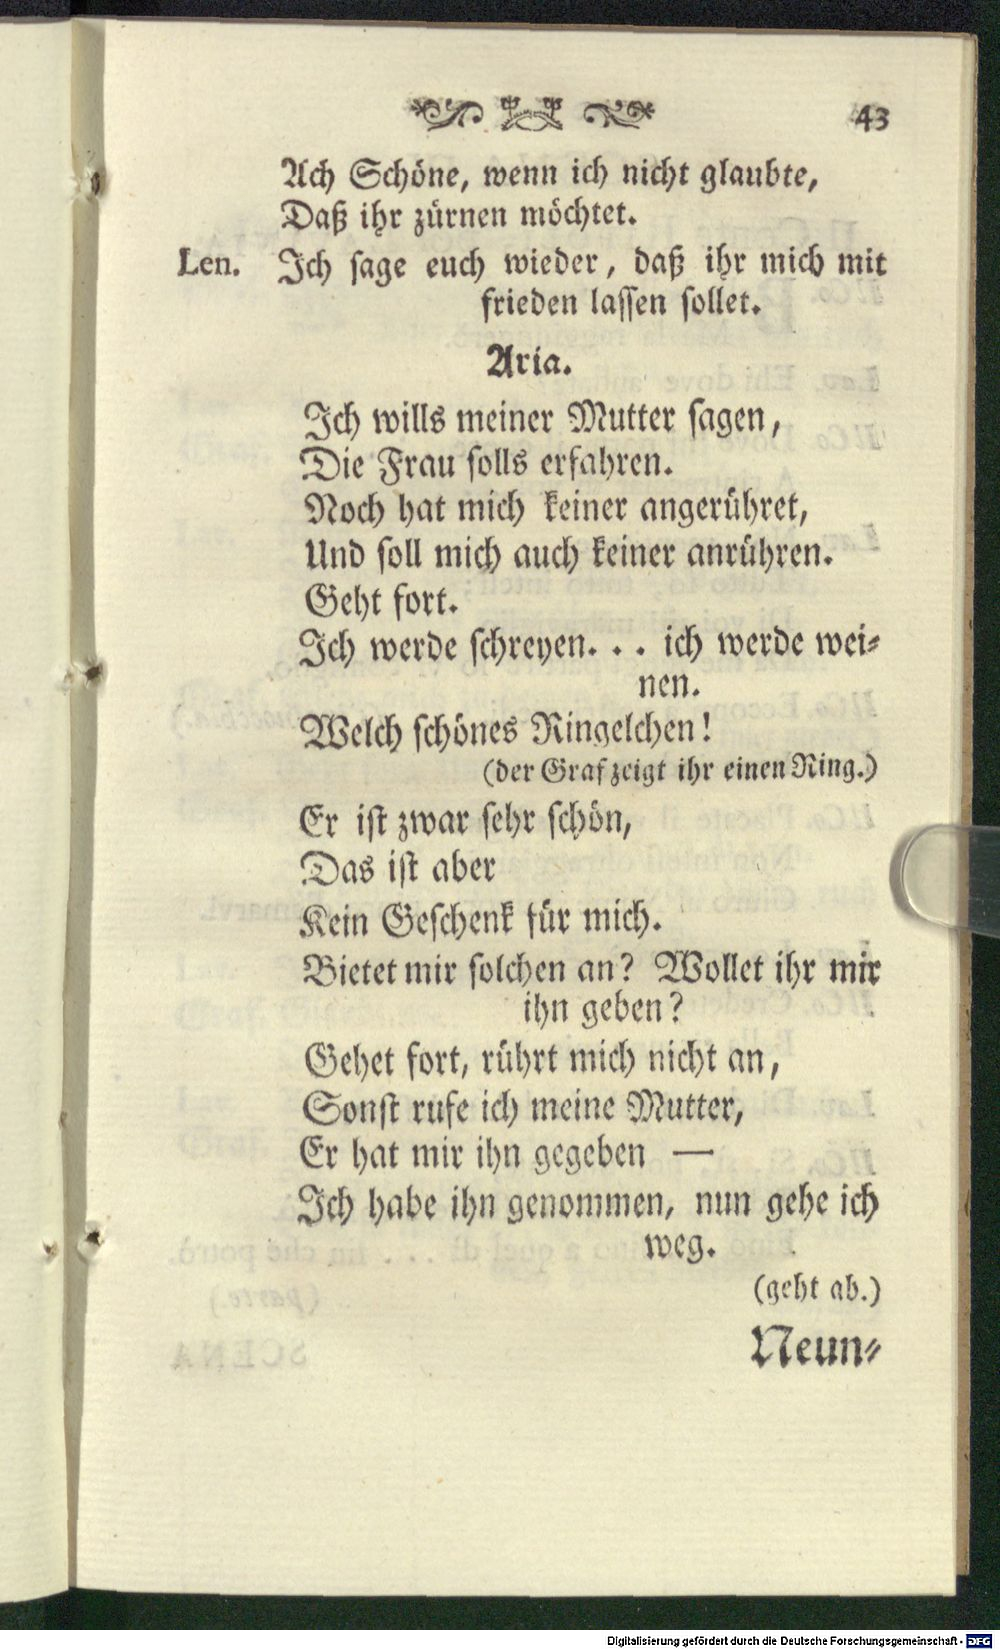 43
Ach Schöne, wenn ich nicht glaubte,
Daß ihr zürnen möchtet.
Len. Ich sage euch wieder, daß ihr mich mit
frieden lassen sollet.
Aria.
Ich wills meiner Mutter sagen,
Die Frau solls erfahren.
Noch hat mich keiner angerühret,
Und soll mich auch keiner anrühren.
Geht fort.
Ich werde schreyen. . . ich werde wei-
nen.
Welch schönes Ringelchen!
(der Graf zeigt ihr einen Ring.)
Er ist zwar sehr schön,
Das ist aber
Kein Geschenk für mich.
Bietet mir solchen an? Wollet ihr mir
ihn geben?
Gehet fort, rührt mich nicht an,
Sonst rufe ich meine Mutter,
Er hat mir ihn gegeben —
Ich habe ihn genommen, nun gehe ich
weg.
(geht ab.)
Neun-
Digitalisierung gefördert durch die Deutsche Forschungsgemeinschaft - DFG